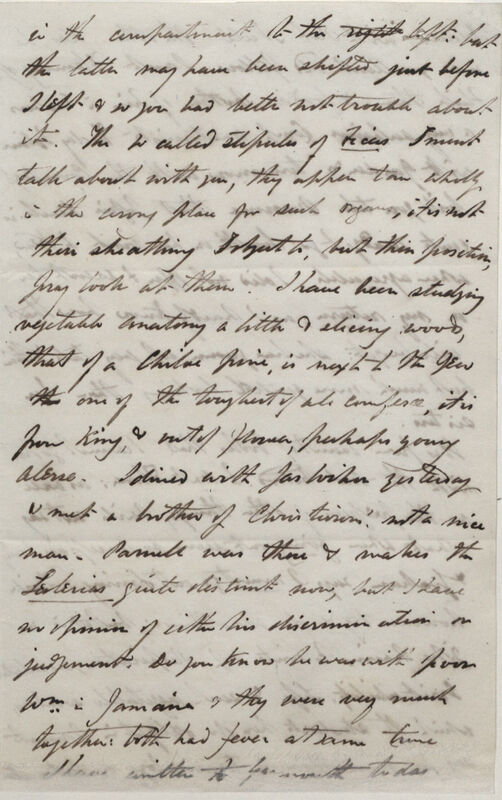 in the compartment to the right left: but
the latter may have been shifted just before
I left & so you had better not trouble about
it. The so called stipules of Ficus I must
talk about with you, they appear to me wholly
in the wrong place for such organs, it is not
their sheathing I object to, but their position,
pray look at them. I have been studying
vegetable anatomy a little & slicing wood,
that of a Chiloe pine, is next to the Yew
the one of the toughest of all coniferæ, it is
from King, & out of flower, perhaps young
Alerse. I dined with yesterday
& met a brother of Christison's: not a nice
man. Parnell was there & makes the
Seslerias quite distinct now, but I have
no opinion of either his discrimination or
judgement. Do you know he was with poor
Wm in Jamaica & they were very much
together: both had fever at same time
I have written to today